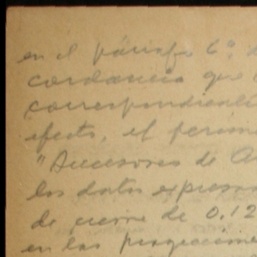 en el párrafo 6º
cordancia que
correspondient
efecto, el perím
"Sucesores de A
los datos expresa
de cierre de 0.12
en las proyeccione